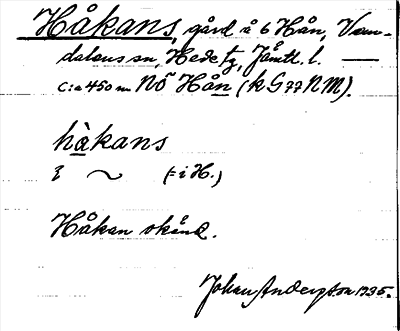 Håkans, gård å 6 Hån, Vem-
dalens sn, Hede tg, Jämtl. l. —
c:a 450 m NÖ Hån (k G 77 NM).
hàkans
ξ ~ (= i H.)
Håkan okänd.
Johan Anderson 1935.